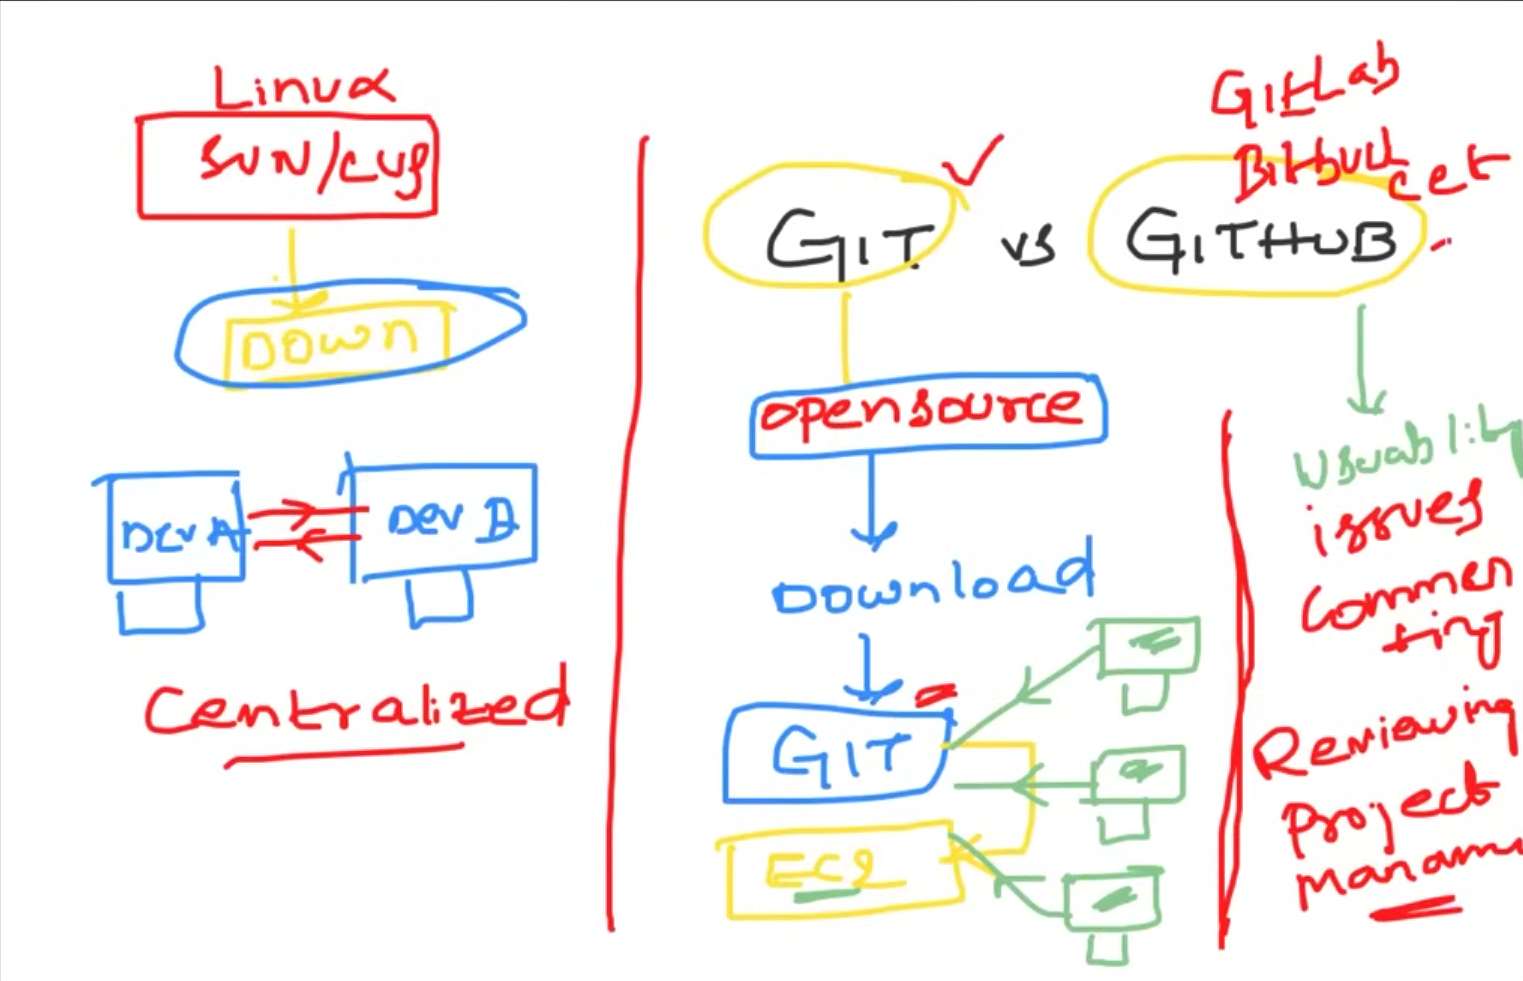 Linux
SVN/CVS
DOWN
Dev A
Dev B
Centralized
GIT vs GITHUB
GitLab
Bitbucket
opensource
Download
GIT
EC2
Usuablity
issues
Commen
ting
Reviewing
Project
Manam